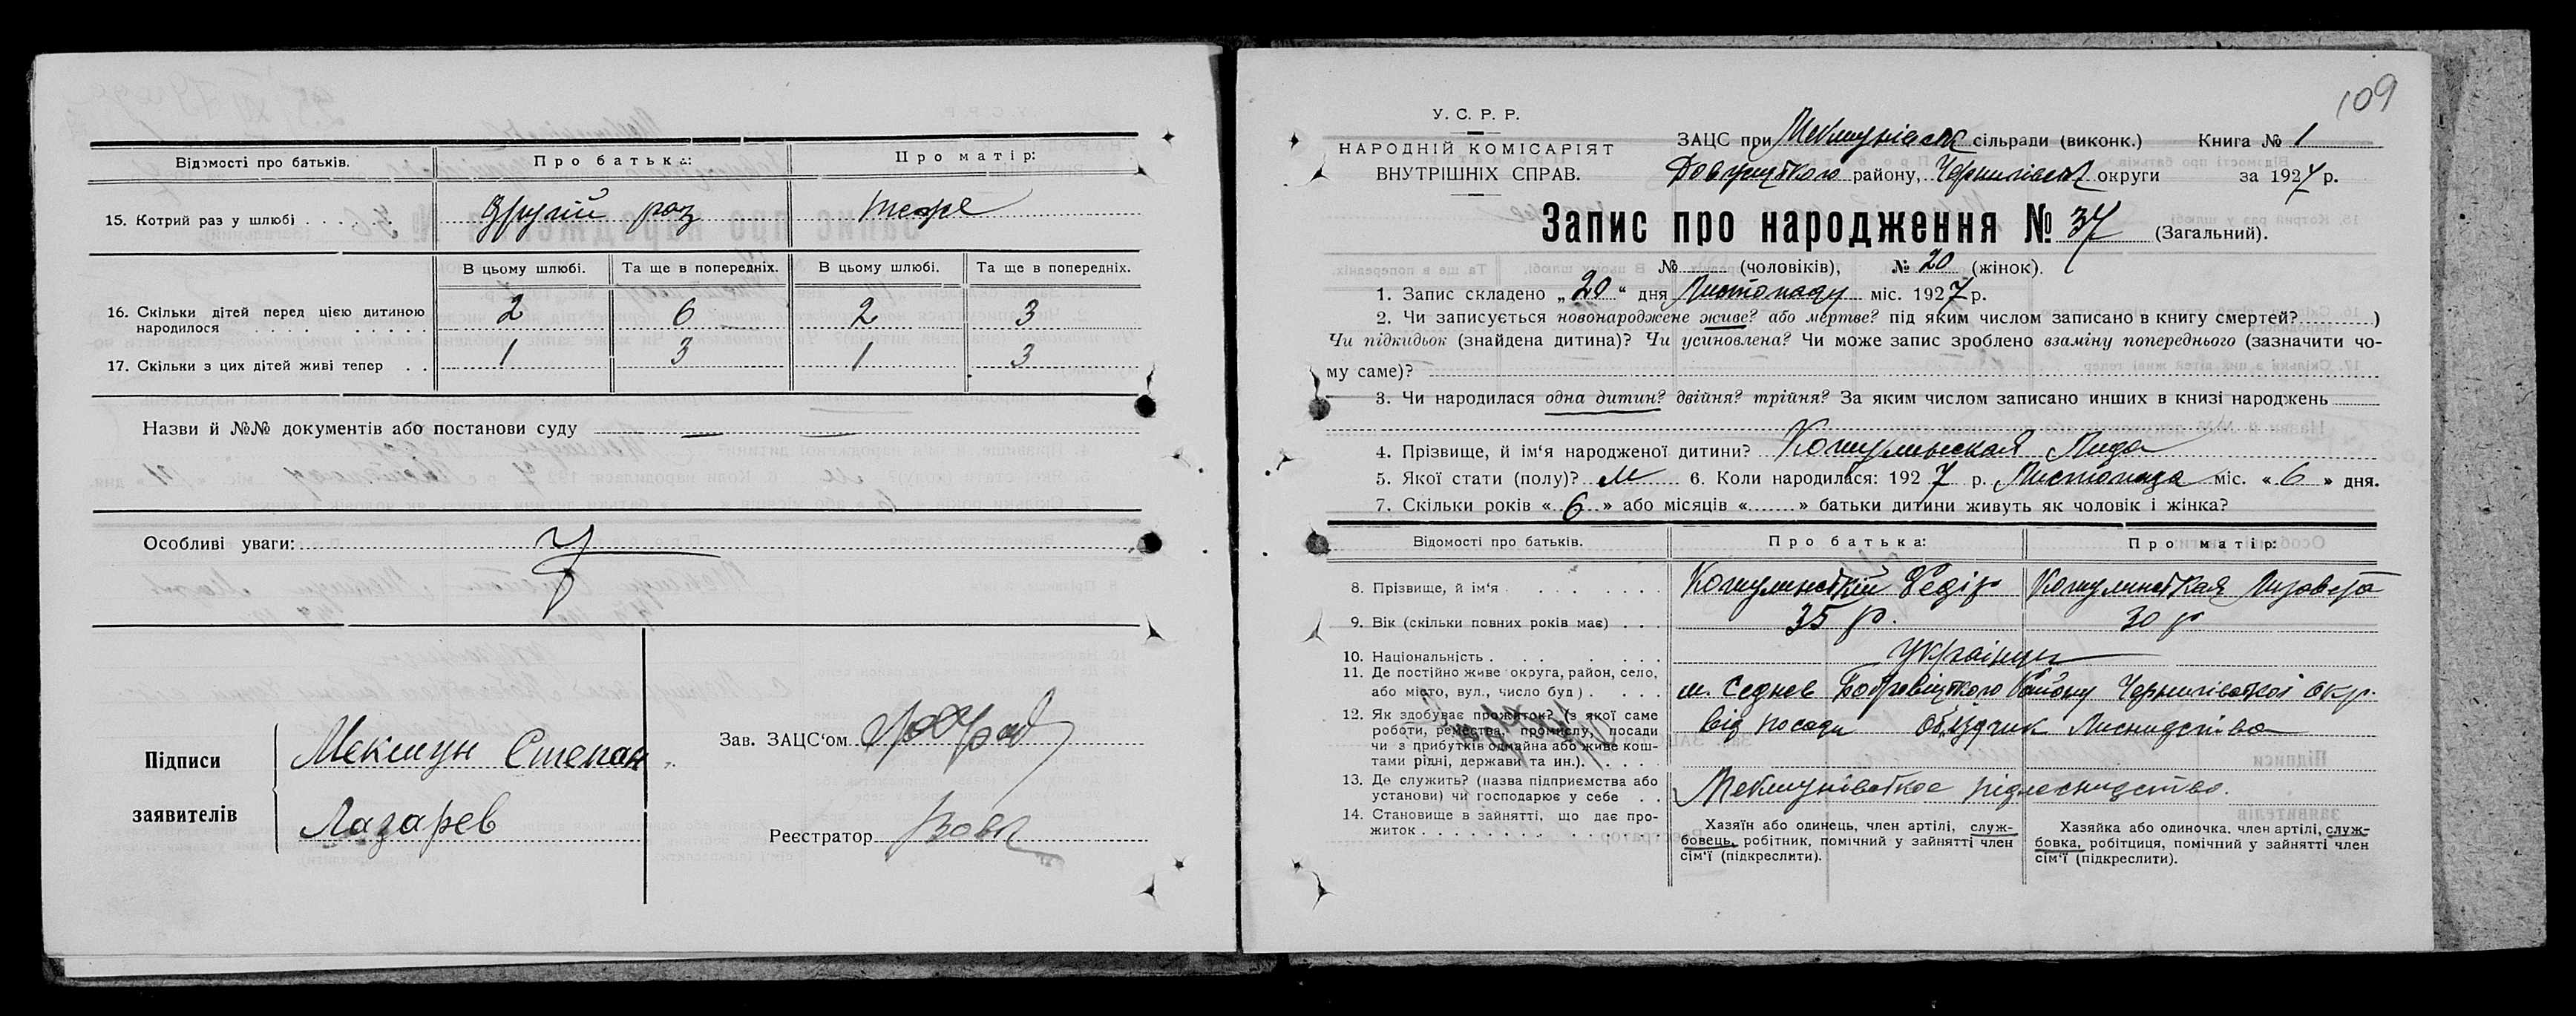 Відомості про батьків.
Про батька:
Про матір:
15. Котрий раз у шлюбі
другій раз
теоре
В цьому шлюбі.
Та ще в попередніх.
В цьому шлюбі.
Та ще в попередніх.
16. Скільки дітей перед цією дитиною
народилося
2
6
2
3
17. Скільки з цих дітей живі тепер
1
3
1
3
Назви й №№ документів або постанови суду — —
Особливі уваги:
Підписи
заявителів
Мекшун Степан
Лазарев
Зав. ЗАЦС‘ом
Реєстратор Вовк
109
У. С. Р. Р.
НАРОДНІЙ КОМІСАРІЯТ
ВНУТРІШНІХ СПРАВ.
ЗАЦС при Мекшунівськ сільради (виконк.) Книга № 1
району, Чернигівськ округи за 1927 р.
Запис про народження № 37 (Загальний).
№ (чоловіків), № 20 (жінок).
1. Запис складено „20“ дня Листопаду міс. 1927 р.
2. Чи записується новонароджене живе? або мертве? під яким числом записано в книгу смертей? )
Чи підкидьок (знайдена дитина)? Чи усиновлена? Чи може запис зроблено взаміну попереднього (зазначити чо-
му саме)?
3. Чи народилася одна дитин? двійня? трійня? За яким числом записано инших в книзі народжень
4. Прізвище, й ім‘я народженої дитини? Кошульнская Лида
5. Якої стати (полу)? М 6. Коли народилася: 1927 р. Листопада міс. «6» дня.
7. Скільки років «6» або місяців « » батьки дитини живуть як чоловік і жінка?
Відомості про батьків.
Про батька:
Про матір:
8. Прізвище, й ім‘я
Кошулинський Федір
Кошулинская Лизовета
9. Вік (скільки повних років має)
35 р.
30 р
10. Національність
Українци
11. Де постійно живе округа, район, село,
або місто, вул., число буд)
м. Седнев Бобровіцкого Району Чернигівської окр.
12. Як здобуває прожиток? (з якої саме
роботи, ремества, промислу, посади
чи з прибутків одмайна або живе кош-
тами рідні, держави та ин.).
від посади обїздчик Лисництва
13. Де служить? (назва підприємства або
установи) чи господарює у себе
Мекшунівское підлесництво.
14. Становище в зайнятті, що дає про-
житок
Хазяїн або одинець, член артілі, служ-
бовець, робітник, помічний у зайнятті член
сім‘ї (підкреслити).
Хазяйка або одиночка, член артілі, служ-
бовка, робітниця, помічний у зайнятті член
сім‘ї (підкреслити).